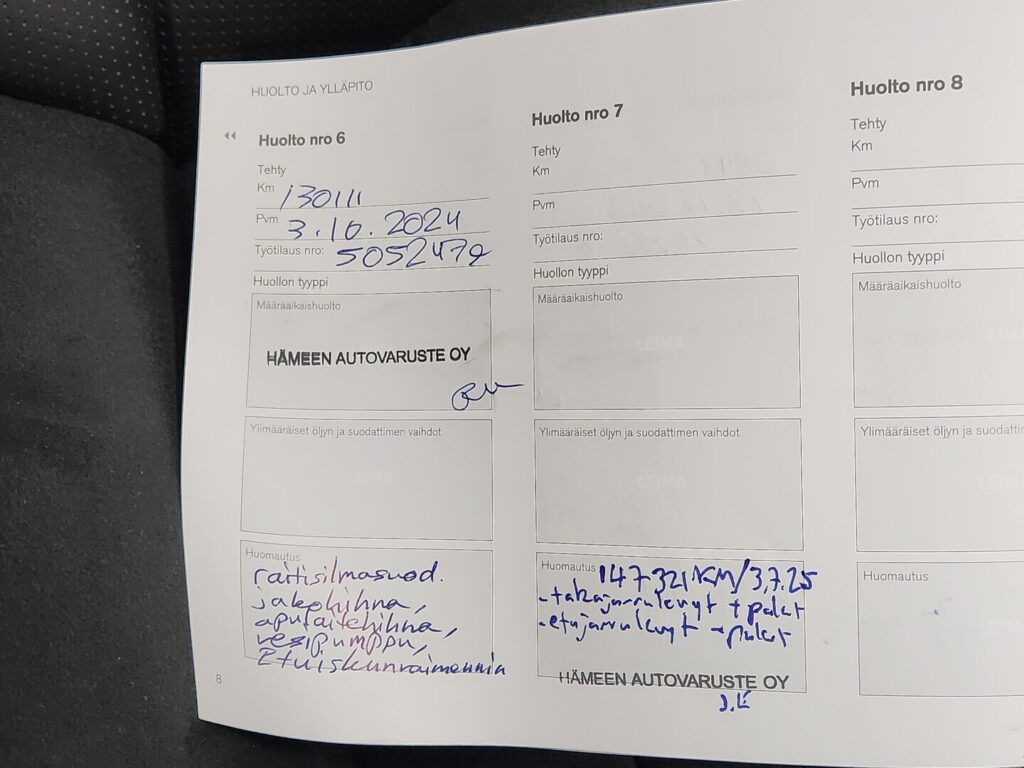 HUOLTO JA YLLÄPITO
Huolto nro 6
Tehty
Km 130111
Pvm 3.10.2024
Työtilaus nro: 5052479
Huollon tyyppi
Määräaikaishuolto
HÄMEEN AUTOVARUSTE OY
Ylimääräiset öljyn ja suodattimen vaihdot
LEIMA
Huomautus
raitisilmasuod.
jakohihna,
apulaitehihna,
vesipumppu,
Etuiskunvaimennin
8
Huolto nro 7
Tehty
Km
Pvm
Työtilaus nro:
Huollon tyyppi
Määräaikaishuolto
LEIMA
Ylimääräiset öljyn ja suodattimen vaihdot
LEIMA
Huomautus 147321KM/3,7.25
-takajarrulevyt + palat
-etujarrulevyt + palat
HÄMEEN AUTOVARUSTE OY
Huolto nro 8
Tehty
Km
Pvm
Työtilaus nro:
Huollon tyyppi
Määräaikaishuolto
Ylimääräiset öljyn ja
Huomautus